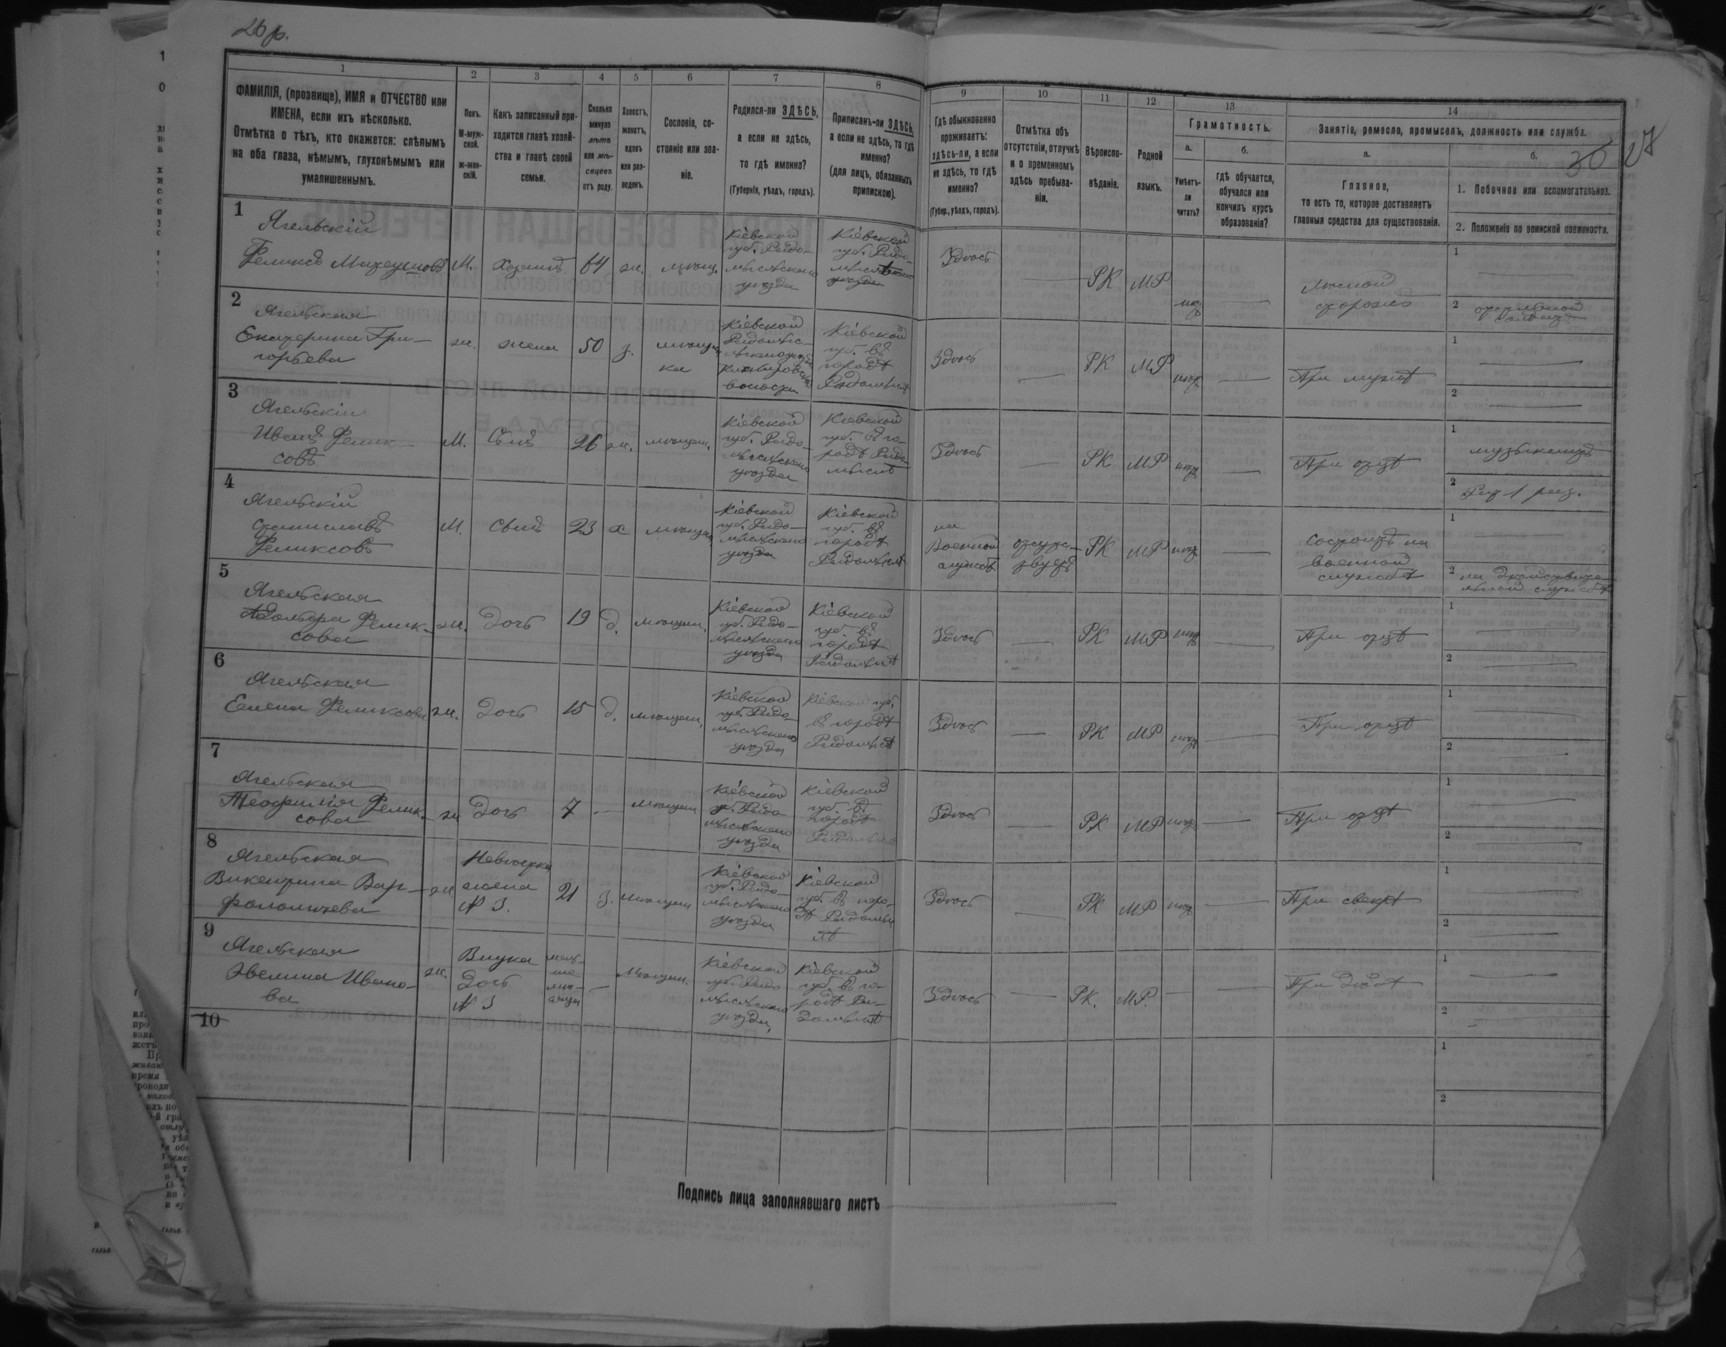 26 р.
1 2 3 4 5 6 7 8 9 10 11 12 13 14
ФАМИЛІЯ, (прозвище), ИМЯ и ОТЧЕСТВО или
ИМЕНА, если ихъ нѣсколько.
Отмѣтка о тѣхъ, кто окажется: слѣпымъ
на оба глаза, нѣмымъ, глухонѣмымъ или
умалишеннымъ.
Полъ.
М-муж-
ской.
ж-жен-
скій.
Какъ записанный при-
ходится главѣ хозяй-
ства и главѣ своей
семьи.
Сколько
минуло
лѣтъ
или мѣ-
сяцевъ
отъ роду.
Холостъ,
женатъ,
вдовъ
или раз-
веденъ.
Сословіе, со-
стояніе или зва-
ніе.
Родился-ли ЗДѢСЬ,
а если не здѣсь,
то гдѣ именно?
(Губернія, уѣздъ, городъ).
Приписанъ-ли ЗДѢСЬ,
а если не здѣсь, то гдѣ
именно?
(для лицъ, обязанныхъ
припискою).
Гдѣ обыкновенно
проживаетъ:
здѣсь-ли, а если
не здѣсь, то гдѣ
именно?
(Губер., уѣздъ, городъ).
Отмѣтка объ
отсутствіи, отлучкѣ
и о временномъ
здѣсь пребыва-
ніи.
Вѣроиспо-
вѣданіе.
Родной
языкъ.
Грамотность.
а.
Умѣетъ-
ли
читать?
б.
гдѣ обучается,
обучался или
кончилъ курсъ
образованія?
Занятіе, ремесло, промыселъ, должность или служба.
а.
Главное,
то есть то, которое доставляетъ
главныя средства для существованія.
б.
30 27
1. Побочное или вспомогательное.
2. Положеніе по воинской повинности.
1
Ягельскій
Феликсъ
М. Хозяинъ 64 ж. мѣщ.
Кіевской
губ. Радо-
мысльскаго
уѣзда
Кіевской
губ. Радо-
мысльскаго
уѣзда
Здѣсь
РК МР
Лѣсной
сторожъ
1
2
2
Ягельская
Екатерина Гри-
горьева
ж. жена 50 з. мѣщан-
ка
Кіевской
волости
Кіевской
губ. въ
городѣ
Радомыслѣ
Здѣсь
РК МР
При мужѣ
1
2
3
Ягельскій
Иванъ Фелик-
совъ
М. Сынъ 26 ж. мѣщан.
Кіевской
губ. Радо-
мысльскаго
уѣзда
Кіевской
губ. в го-
родѣ Радо-
мыслѣ
Здѣсь
РК МР
При отцѣ
1 музыкантъ
2
4
Ягельскій
Станиславъ
Феликсовъ
М. сынъ 23 х мѣщан.
Кіевской
губ. Радо-
мысльскаго
уѣзда
Кіевской
губ. въ
городѣ
Радомыслѣ
на
военной
службѣ
отсут-
ствуетъ
РК МР
состоитъ на
военной
службѣ
1
2 на дѣйстви-
тельной службѣ
5
Ягельская
Фелик-
сова
ж. дочь 19 д. мѣщан.
Кіевской
губ. Радо-
мысльскаго
уѣзда
Кіевской
губ. въ
городѣ
Радомыслѣ
Здѣсь
РК МР
При отцѣ
1
2
6
Ягельская
Елена Феликсова
ж. дочь 15 д. мѣщан.
Кіевской
губ. Радо-
мысльскаго
уѣзда
Кіевской губ.
въ городѣ
Радомыслѣ
Здѣсь
РК МР
При отцѣ
1
2
7
Ягельская
Теофилія Фелик-
сова
ж дочь 7 мѣщан
Кіевской
г. Радо-
мысльскаго
уѣзда
Кіевской
губ. въ
городѣ
Радомыслѣ
Здѣсь
РК МР
При отцѣ
1
2
8
Ягельская
Викентина Вар-
фоломеева
ж
Невѣстка
жена
N 3.
21 з. мѣщан
Кіевской
губ. Радо-
мысльскаго
уѣзда
Кіевской
губ. в горо-
дѣ Радомыс-
лѣ
Здѣсь
РК МР
При свекрѣ
1
2
9
Ягельская
Эвелина Ивано-
ва
ж.
Внука
дочь
N 3
мѣщан.
Кіевской
губ. Радо-
мысльскаго
уѣзда
Кіевской
губ. в го-
родѣ Ра-
домыслѣ
Здѣсь
РК. МР.
При дѣдѣ
1
2
10
1
2
Подпись лица заполнявшаго листъ